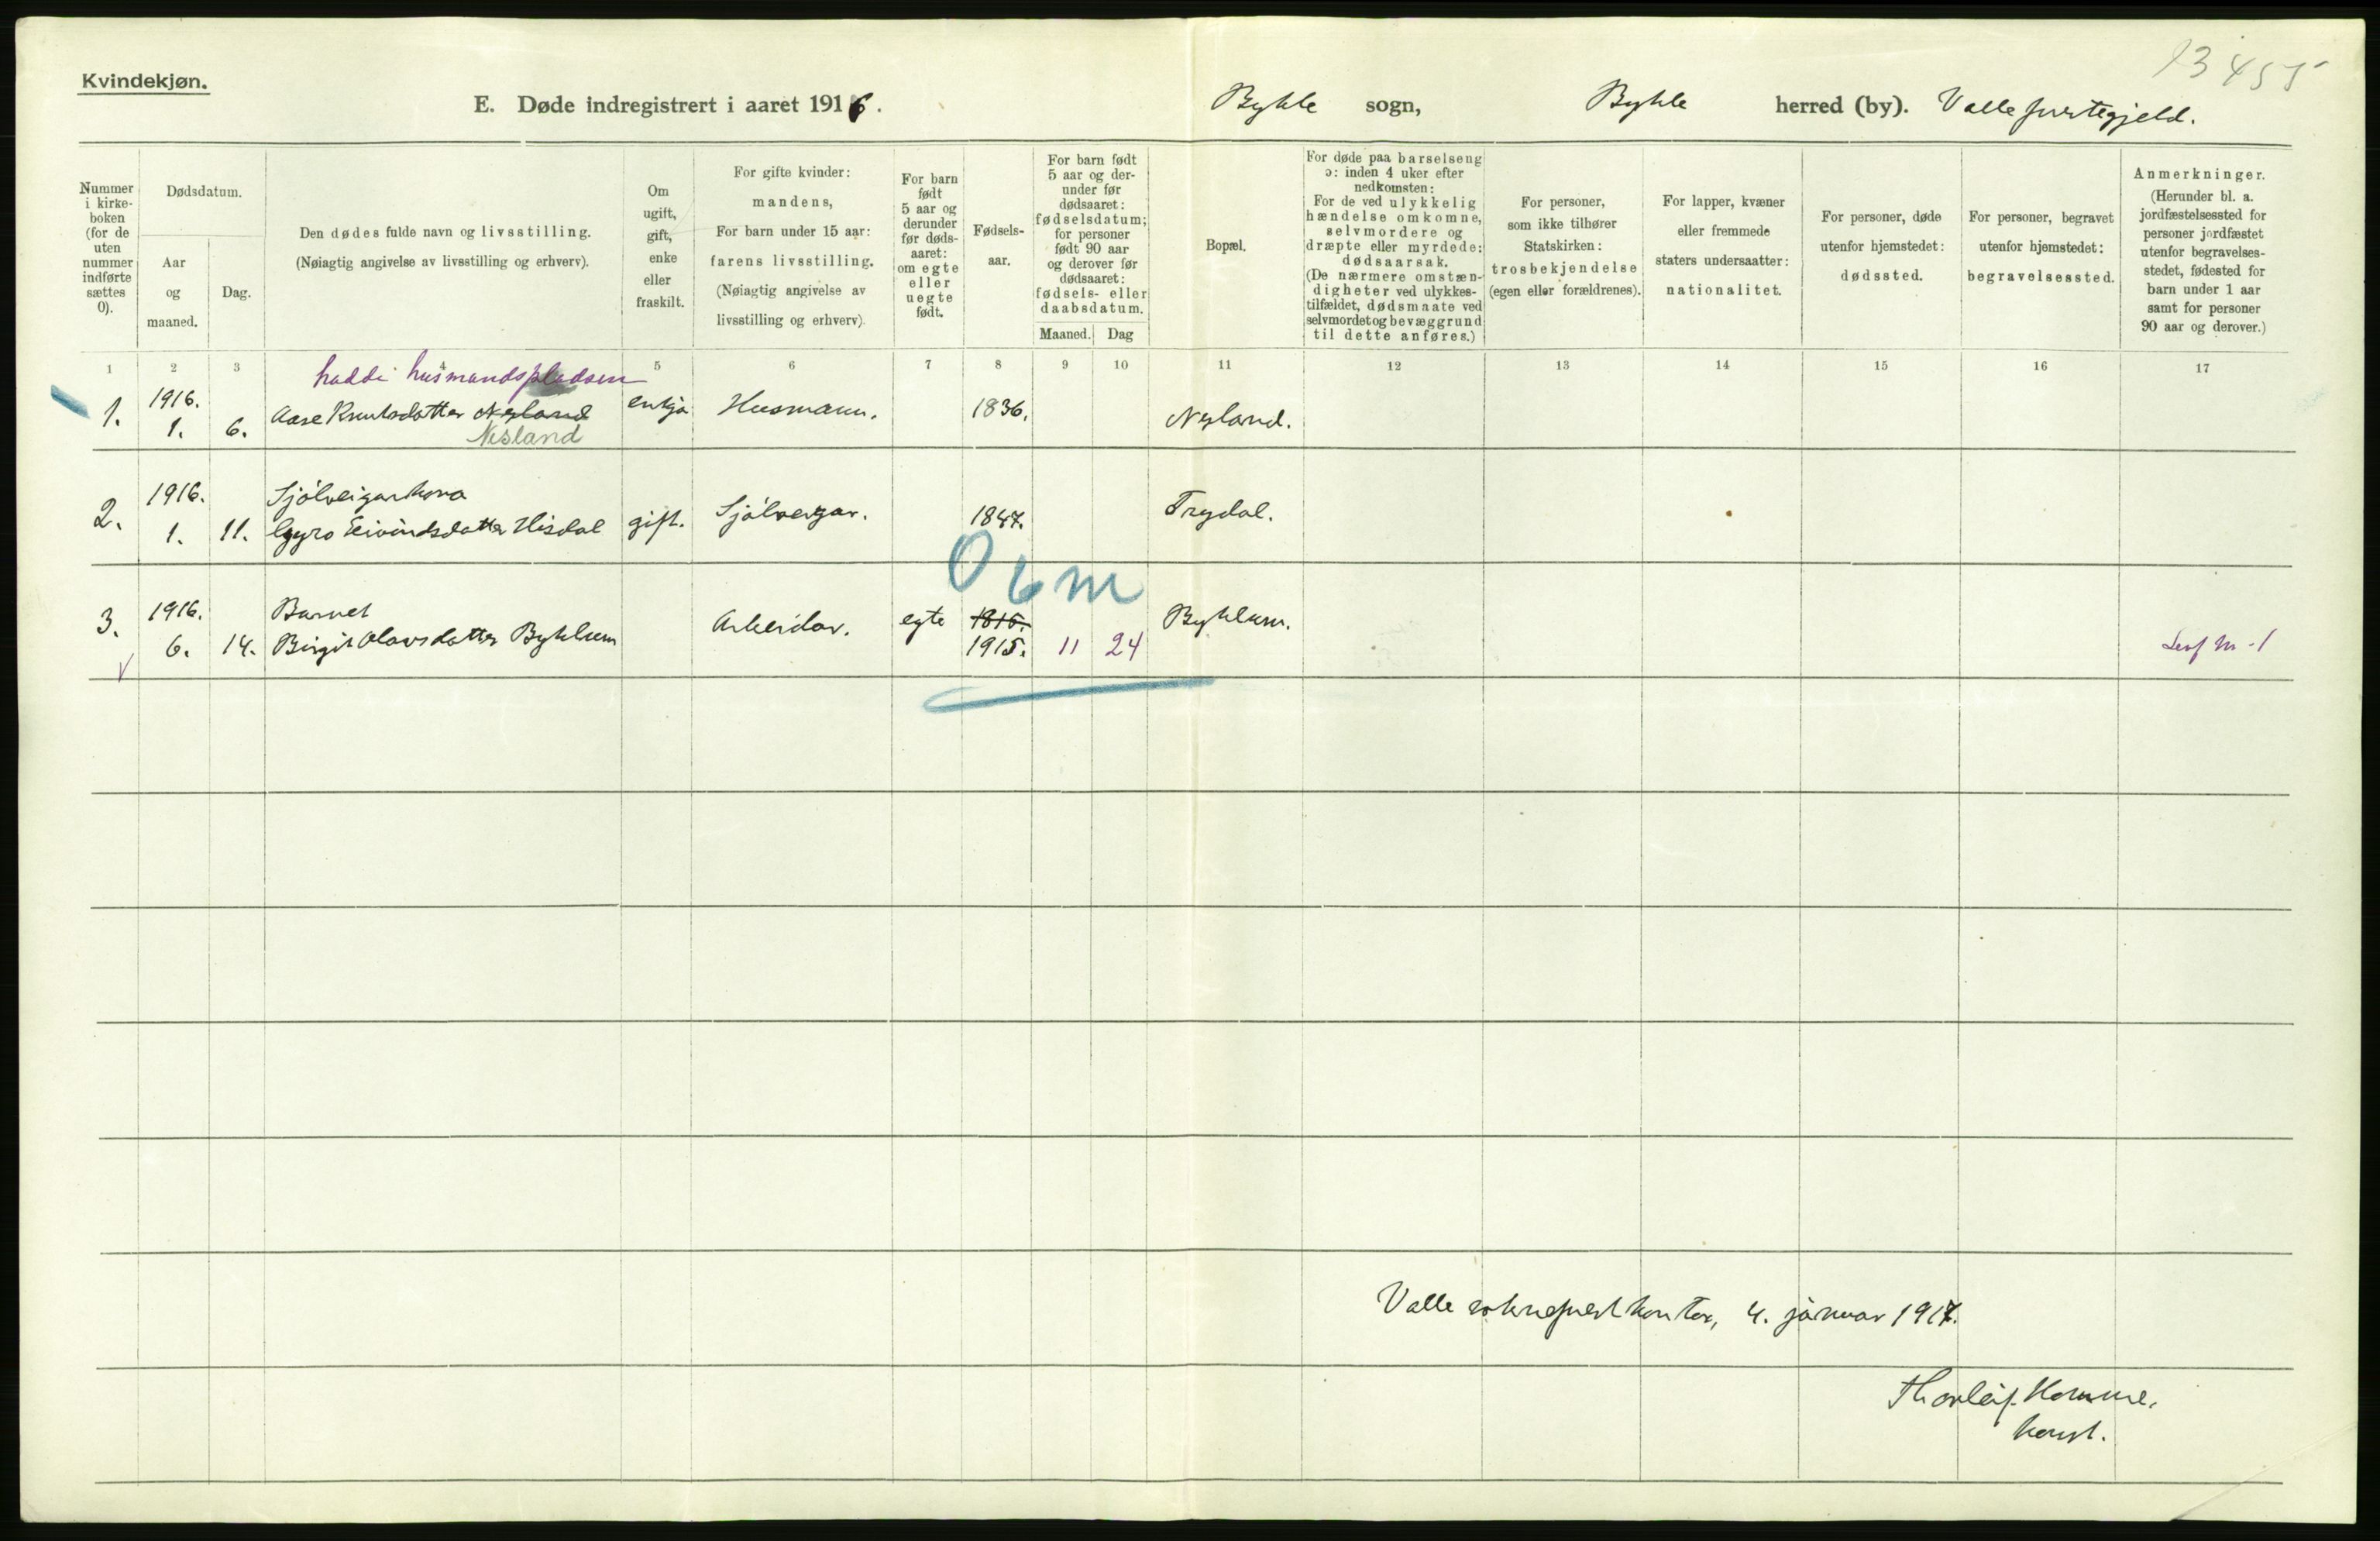 Kvindekjøn.
E. Døde indregistrert i aaret 1916.
Bykle sogn, Bykle herred (by). Valle prestegjeld.
13455
Nummer i kirke- boken (for de uten nummer indførte sættes 0).
Dødsdatum.
Aar og maaned.
Dag.
Den dødes fulde navn og livsstilling.
(Nøiagtig angivelse av livsstilling og erhverv).
Om ugift, gift, enke eller fraskilt.
For gifte kvinder:
mandens,
For barn under 15 aar:
farens livsstilling.
(Nøiagtig angivelse av
livsstilling og erhverv).
For barn født 5 aar og derunder før døds- aaret: om egte eller uegte født.
Fødsels-
aar.
For barn født
5 aar og der-
under før
dødsaaret:
fødselsdatum;
for personer
født 90 aar
og derover før
dødsaaret:
fødsels- eller
daabsdatum.
Maaned. Dag
Bopæl.
For døde paa barselseng
ɔ: inden 4 uker efter
nedkomsten:
For de ved ulykkelig
hændelse omkomne,
selvmordere og
dræpte eller myrdede:
dødsaarsak.
(De nærmere omstæn-
digheter ved ulykkes-
tilfældet, dødsmaate ved
selvmordet og bevæggrund
til dette anføres.)
For personer,
som ikke tilhører
Statskirken:
trosbekjendelse
(egen eller forældrenes).
For lapper, kvæner
eller fremmede
staters undersaatter:
nationalitet.
For personer, døde
utenfor hjemstedet:
dødssted.
For personer, begravet
utenfor hjemstedet:
begravelsessted.
Anmerkninger.
(Herunder bl. a.
jordfæstelsessted for
personer jordfæstet
utenfor begravelses-
stedet, fødested for
barn under 1 aar
samt for personer
90 aar og derover.)
1 2 3 4 5 6 7 8 9 10 11 12 13 14 15 16 17
hadde husmandspladsen
1. 1916. 1. 6. Aase Knutsdatter Nesland enkja Husmann. 1836. Nesland.
Nesland
2. 1916. 1. 11. Sjöleigarkona
Gyro Eivindsdatter Hisdal gift. Sjöleigar. 1847. Trydal.
0 6 m
3. 1916. 6. 14. Barnet
Birgit Olavsdatter Byklum Arbeidar. egte 1815. Byklum.
1915. 11 24
Valle sokneprestkontor, 4. januar 1917.
Thorleif Homme,
konst.